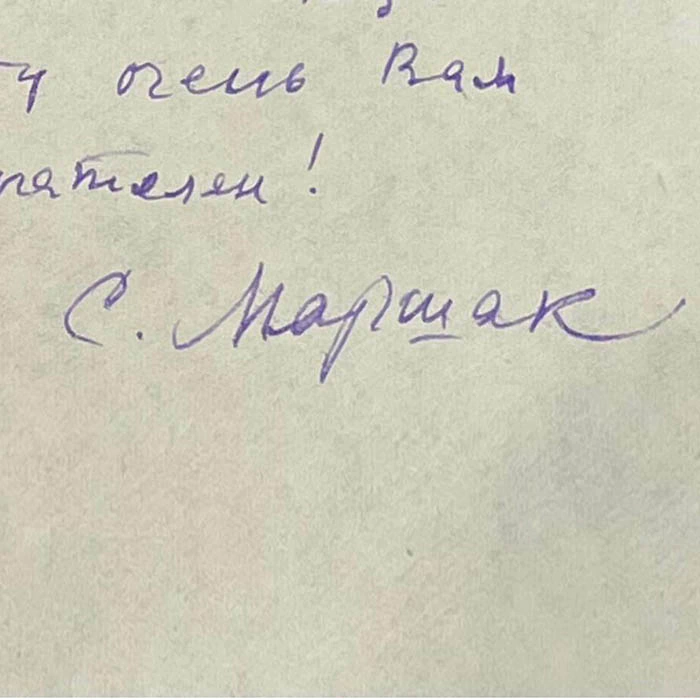 очень Вам
нателен!
С. Маршак